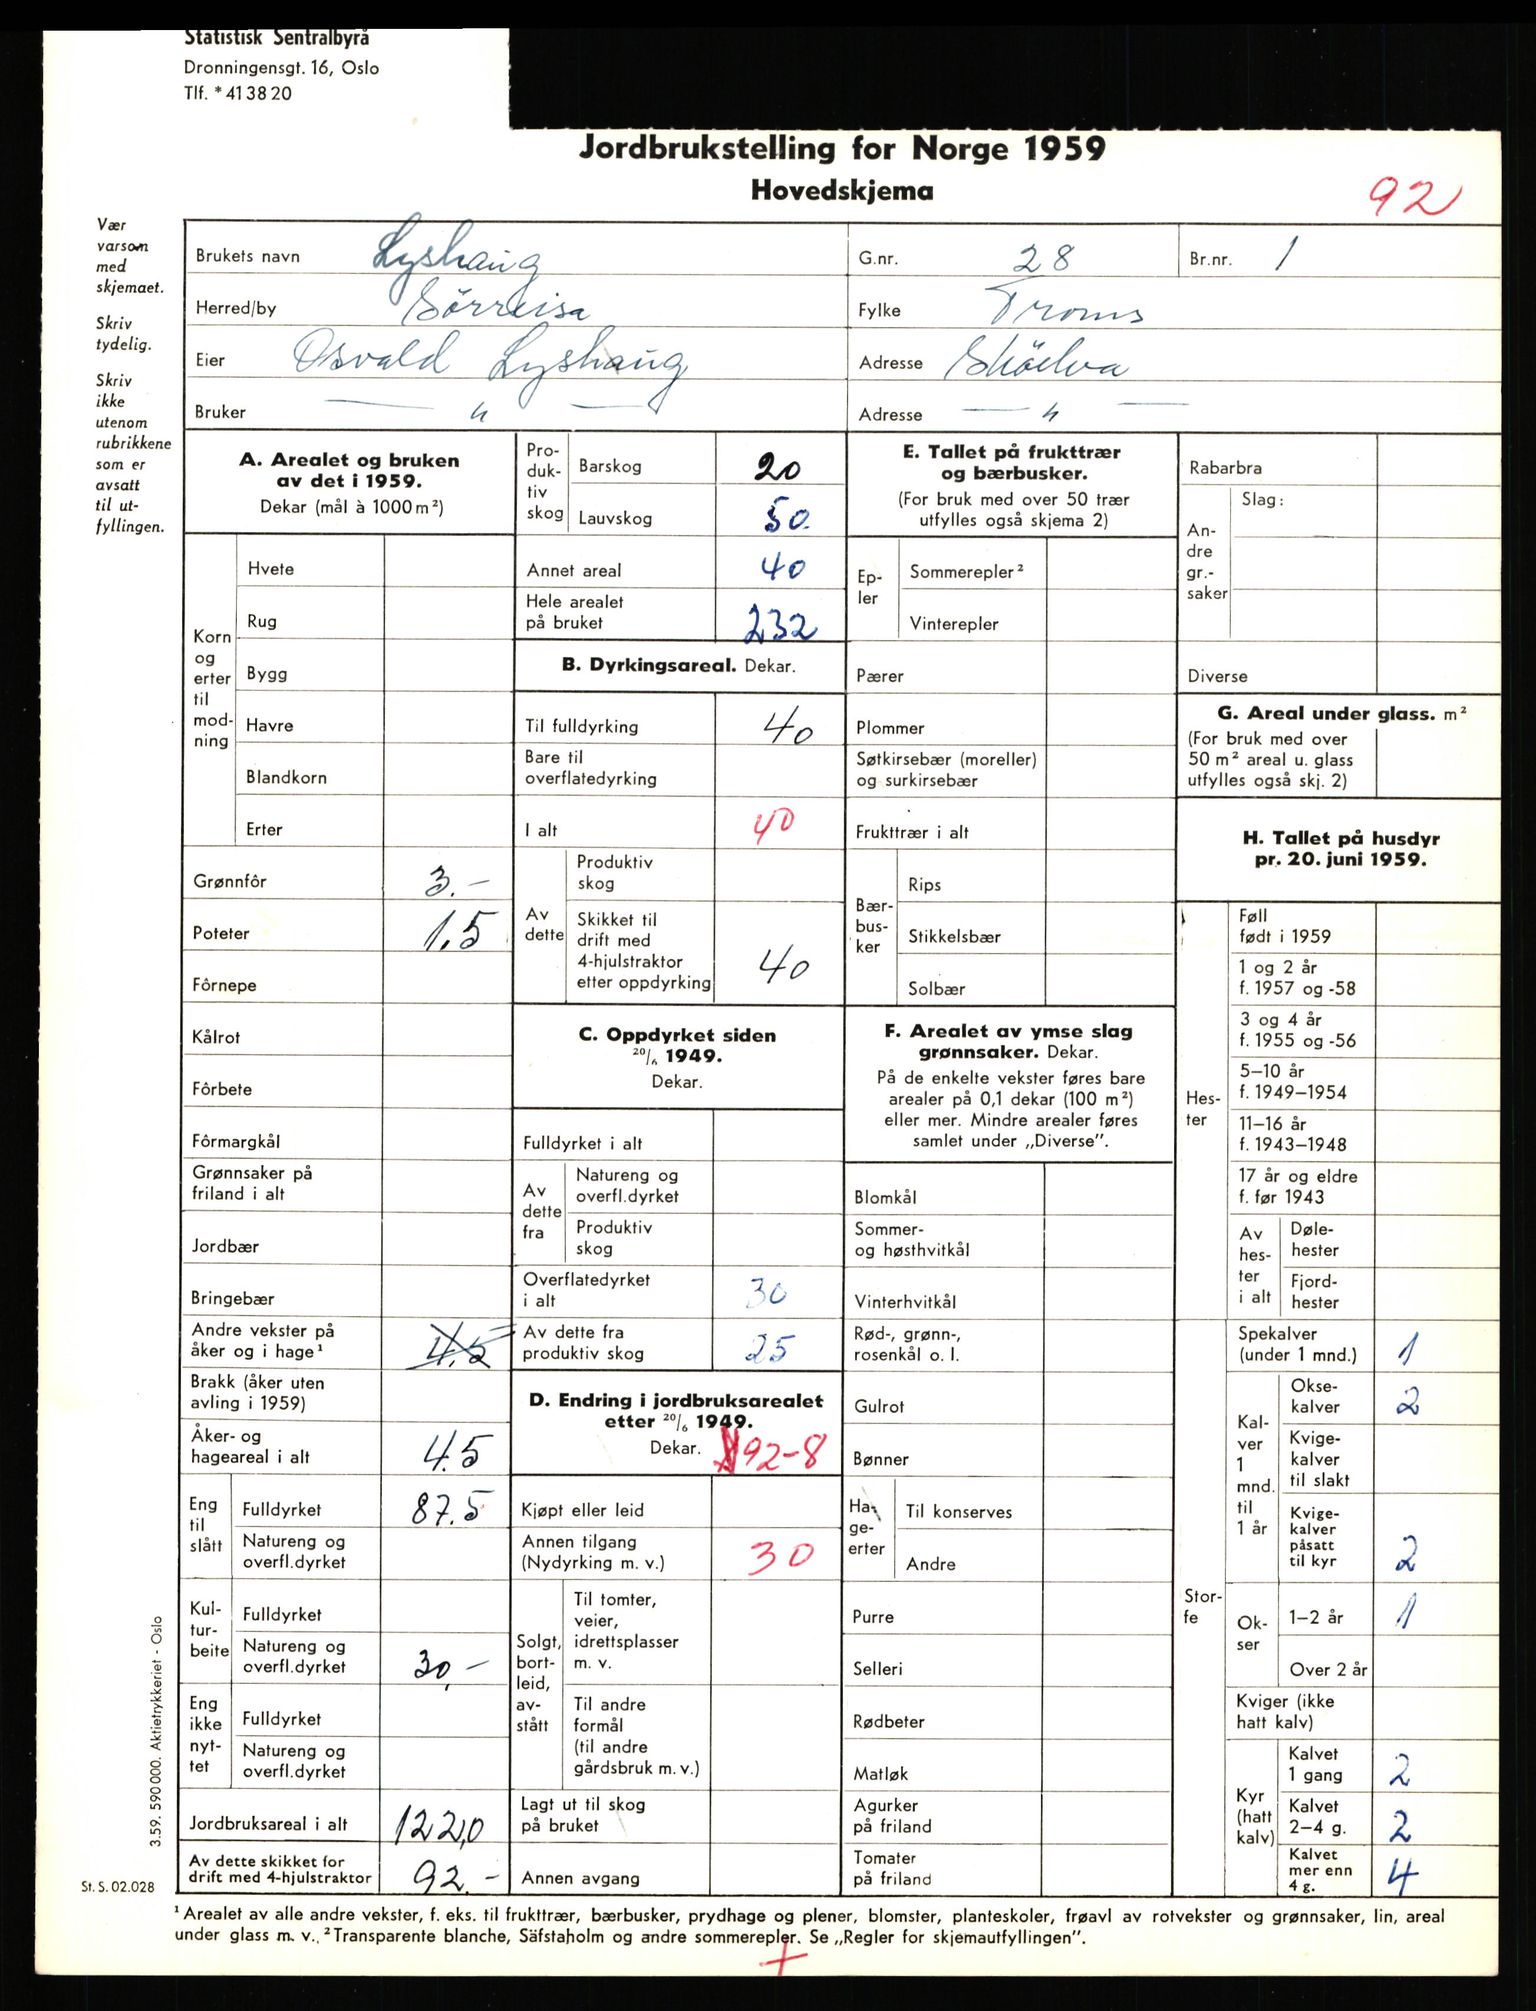 Statistisk Sentralbyrå
Dronningensgt. 16, Oslo
Tlf. * 41 38 20
Jordbrukstelling for Norge 1959
Hovedskjema
92
Vær
varsom
med
skjemaet.
Skriv
tydelig.
Skriv
ikke
utenom
rubrikkene
som er
avsatt
til ut-
fyllingen.
Brukets navn Lyshaug G.nr. 28 Br.nr. 1
Herred/by Sörreisa Fylke Troms
Eier Osvald Lyshaug Adresse Sköelva
Bruker — " — Adresse — " —
A. Arealet og bruken
av det i 1959.
Dekar (mål à 1000 m²)
Korn
og
erter
til
mod-
ning
Hvete
Rug
Bygg
Havre
Blandkorn
Erter
Grønnfôr 3.-
Poteter 1.5
Fôrnepe
Kålrot
Fôrbete
Fôrmargkål
Grønnsaker på
friland i alt
Jordbær
Bringebær
Andre vekster på
åker og i hage¹ 4.5
Brakk (åker uten
avling i 1959)
Åker- og
hageareal i alt 4.5
Eng
til
slått
Fulldyrket 87.5
Natureng og
overfl.dyrket
Kul-
tur-
beite
Fulldyrket
Natureng og
overfl.dyrket 30,-
Eng
ikke
nyt-
tet
Fulldyrket
Natureng og
overfl.dyrket
Jordbruksareal i alt 122,0
Av dette skikket for
drift med 4-hjulstraktor 92.-
Pro-
duk-
tiv
skog
Barskog 20
Lauvskog 50.
Annet areal 40
Hele arealet
på bruket 232
B. Dyrkingsareal. Dekar.
Til fulldyrking 40
Bare til
overflatedyrking
I alt 40
Av
dette
Produktiv
skog
Skikket til
drift med
4-hjulstraktor
etter oppdyrking 40
C. Oppdyrket siden
20/6 1949.
Dekar.
Fulldyrket i alt
Av
dette
fra
Natureng og
overfl.dyrket
Produktiv
skog
Overflatedyrket
i alt 30
Av dette fra
produktiv skog 25
D. Endring i jordbruksarealet
etter 20/6 1949.
Dekar. 92-8
Kjøpt eller leid
Annen tilgang
(Nydyrking m. v.) 30
Solgt,
bort-
leid,
av-
stått
Til tomter,
veier,
idrettsplasser
m. v.
Til andre
formål
(til andre
gårdsbruk m. v.)
Lagt ut til skog
på bruket
Annen avgang
E. Tallet på frukttrær
og bærbusker.
(For bruk med over 50 trær
utfylles også skjema 2)
Ep-
ler
Sommerepler²
Vinterepler
Pærer
Plommer
Søtkirsebær (moreller)
og surkirsebær
Frukttrær i alt
Bær-
bus-
ker
Rips
Stikkelsbær
Solbær
F. Arealet av ymse slag
grønnsaker. Dekar.
På de enkelte vekster føres bare
arealer på 0,1 dekar (100 m²)
eller mer. Mindre arealer føres
samlet under „Diverse”.
Blomkål
Sommer-
og høsthvitkål
Vinterhvitkål
Rød-, grønn-,
rosenkål o. l.
Gulrot
Bønner
Ha-
ge-
erter
Til konserves
Andre
Purre
Selleri
Rødbeter
Matløk
Agurker
på friland
Tomater
på friland
Rabarbra
An-
dre
gr.-
saker
Slag:
Diverse
G. Areal under glass. m²
(For bruk med over
50 m² areal u. glass
utfylles også skj. 2)
H. Tallet på husdyr
pr. 20. juni 1959.
Hes-
ter
Føll
født i 1959
1 og 2 år
f. 1957 og -58
3 og 4 år
f. 1955 og -56
5–10 år
f. 1949–1954
11–16 år
f. 1943–1948
17 år og eldre
f. før 1943
Av
hes-
ter
i alt
Døle-
hester
Fjord-
hester
Stor-
fe
Spekalver
(under 1 mnd.) 1
Kal-
ver
1
mnd.
til
1 år
Okse-
kalver 2
Kvige-
kalver
til slakt
Kvige-
kalver
påsatt
til kyr 2
Ok-
ser
1–2 år 1
Over 2 år
Kviger (ikke
hatt kalv)
Kyr
(hatt
kalv)
Kalvet
1 gang 2
Kalvet
2–4 g. 2
Kalvet
mer enn
4 g. 4
3.59. 590 000. Aktietrykkeriet - Oslo
St. S. 02.028
¹ Arealet av alle andre vekster, f. eks. til frukttrær, bærbusker, prydhage og plener, blomster, planteskoler, frøavl av rotvekster og grønnsaker, lin, areal
under glass m. v., ² Transparente blanche, Säfstaholm og andre sommerepler. Se „Regler for skjemautfyllingen”.
+